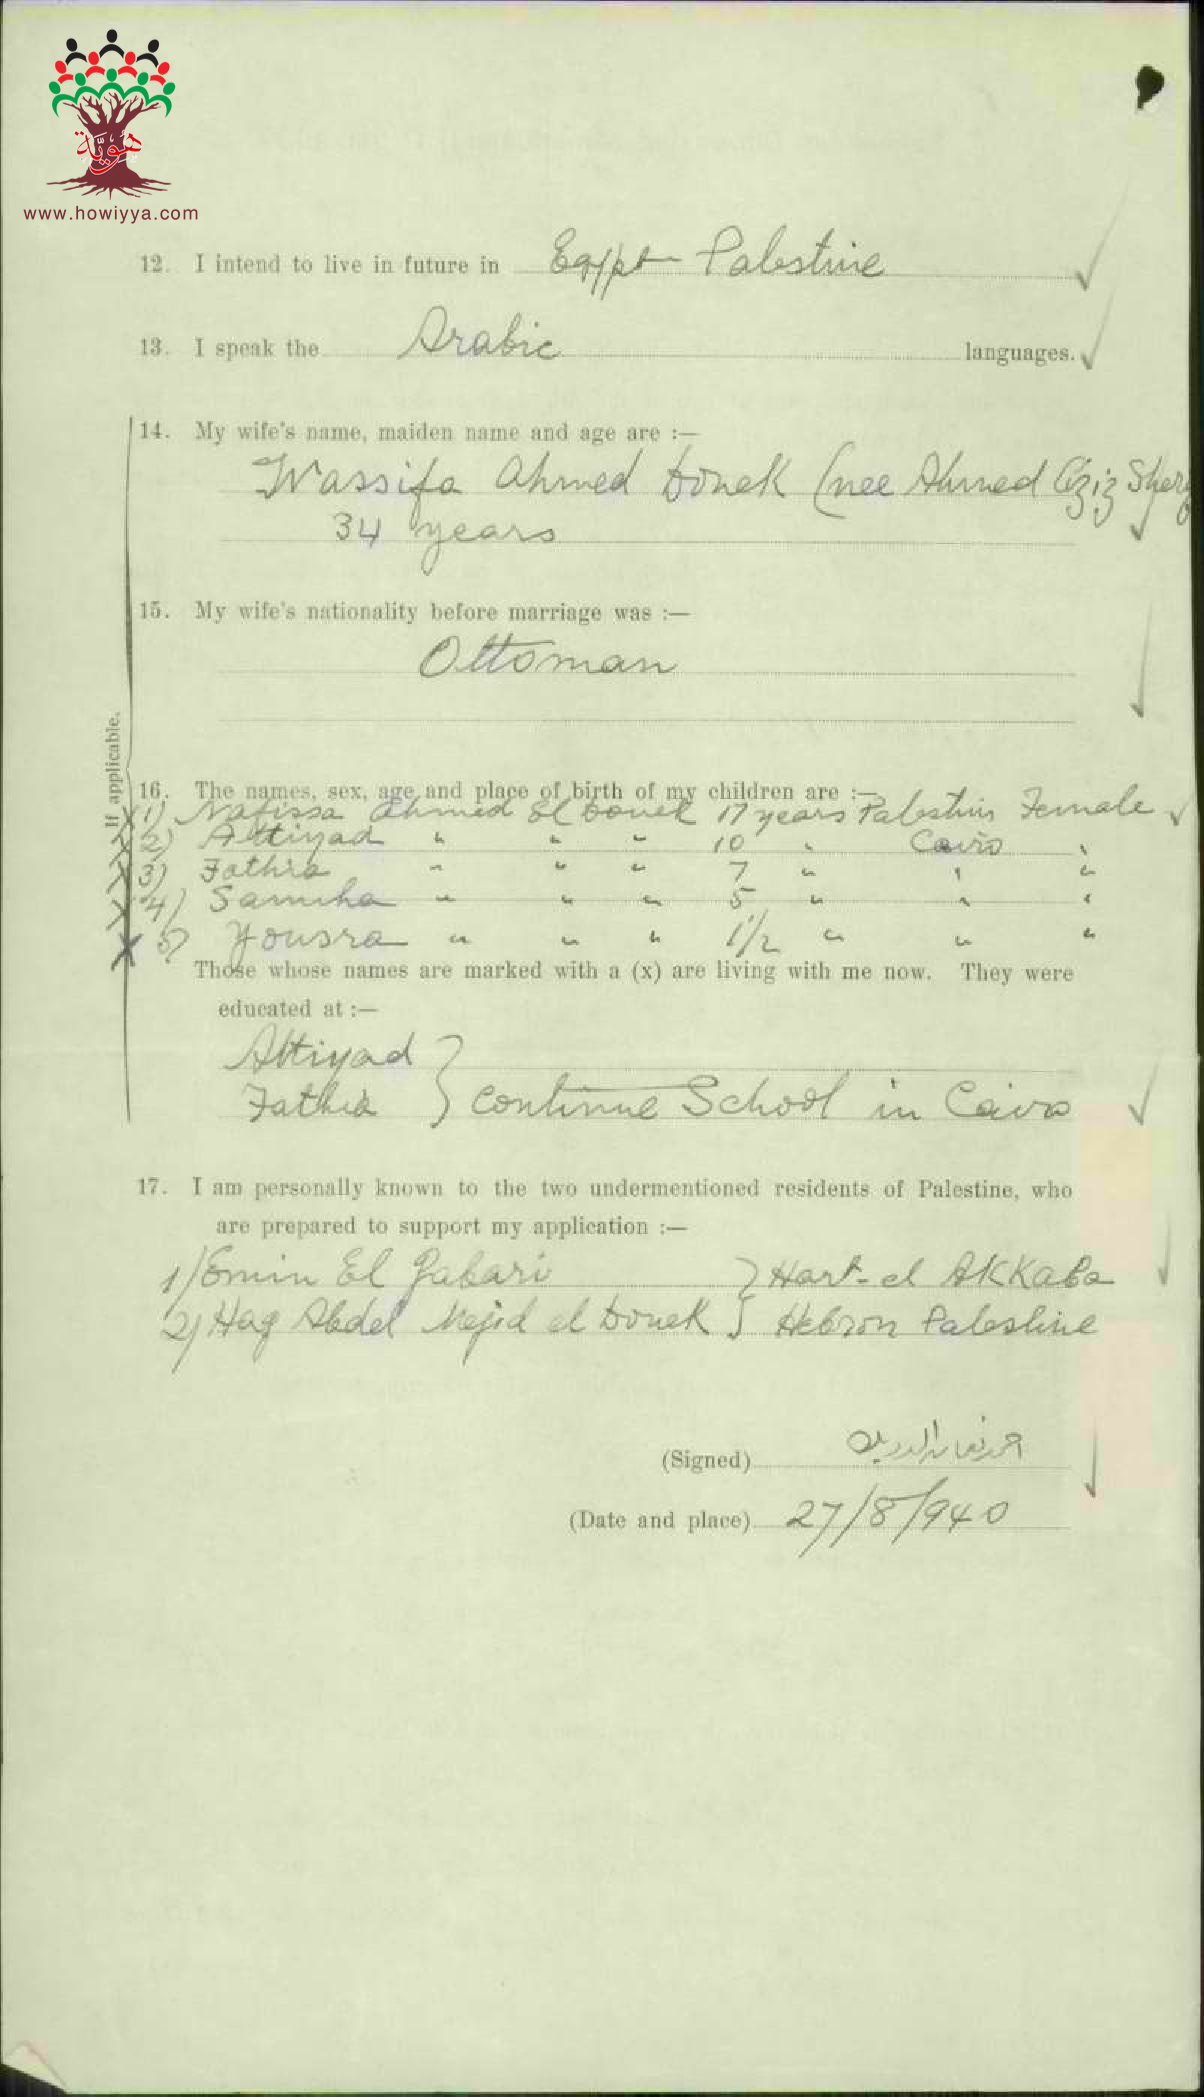 هوية
www.howiyya.com
12. I intend to live in future in Egypt Palestine
13. I speak the Arabic languages.
14. My wife's name, maiden name and age are :—
Wassifa Ahmed Douek (nee Ahmed Aziz
34 years
15. My wife's nationality before marriage was :—
Ottoman
If applicable.
16. The names, sex, age and place of birth of my children are :—
X 1) Nafissa Ahmed El Douek 17 years Palestine Female
X 2) Attiyad " " " 10 " Cairo "
X 3) Fathia " " " 7 " " "
X 4) Samiha " " " 5 " " "
X 5) Yousra " " " 1 1/2 " " "
Those whose names are marked with a (x) are living with me now. They were
educated at :—
Attiyad
Fathia } Continue School in Cairo
17. I am personally known to the two undermentioned residents of Palestine, who
are prepared to support my application :—
1) Emin El Gabari } Hart-el AKKaba
2) Hag Abdel Mejid el Douek } Hebron Palestine
(Signed)
(Date and place) 27/8/940